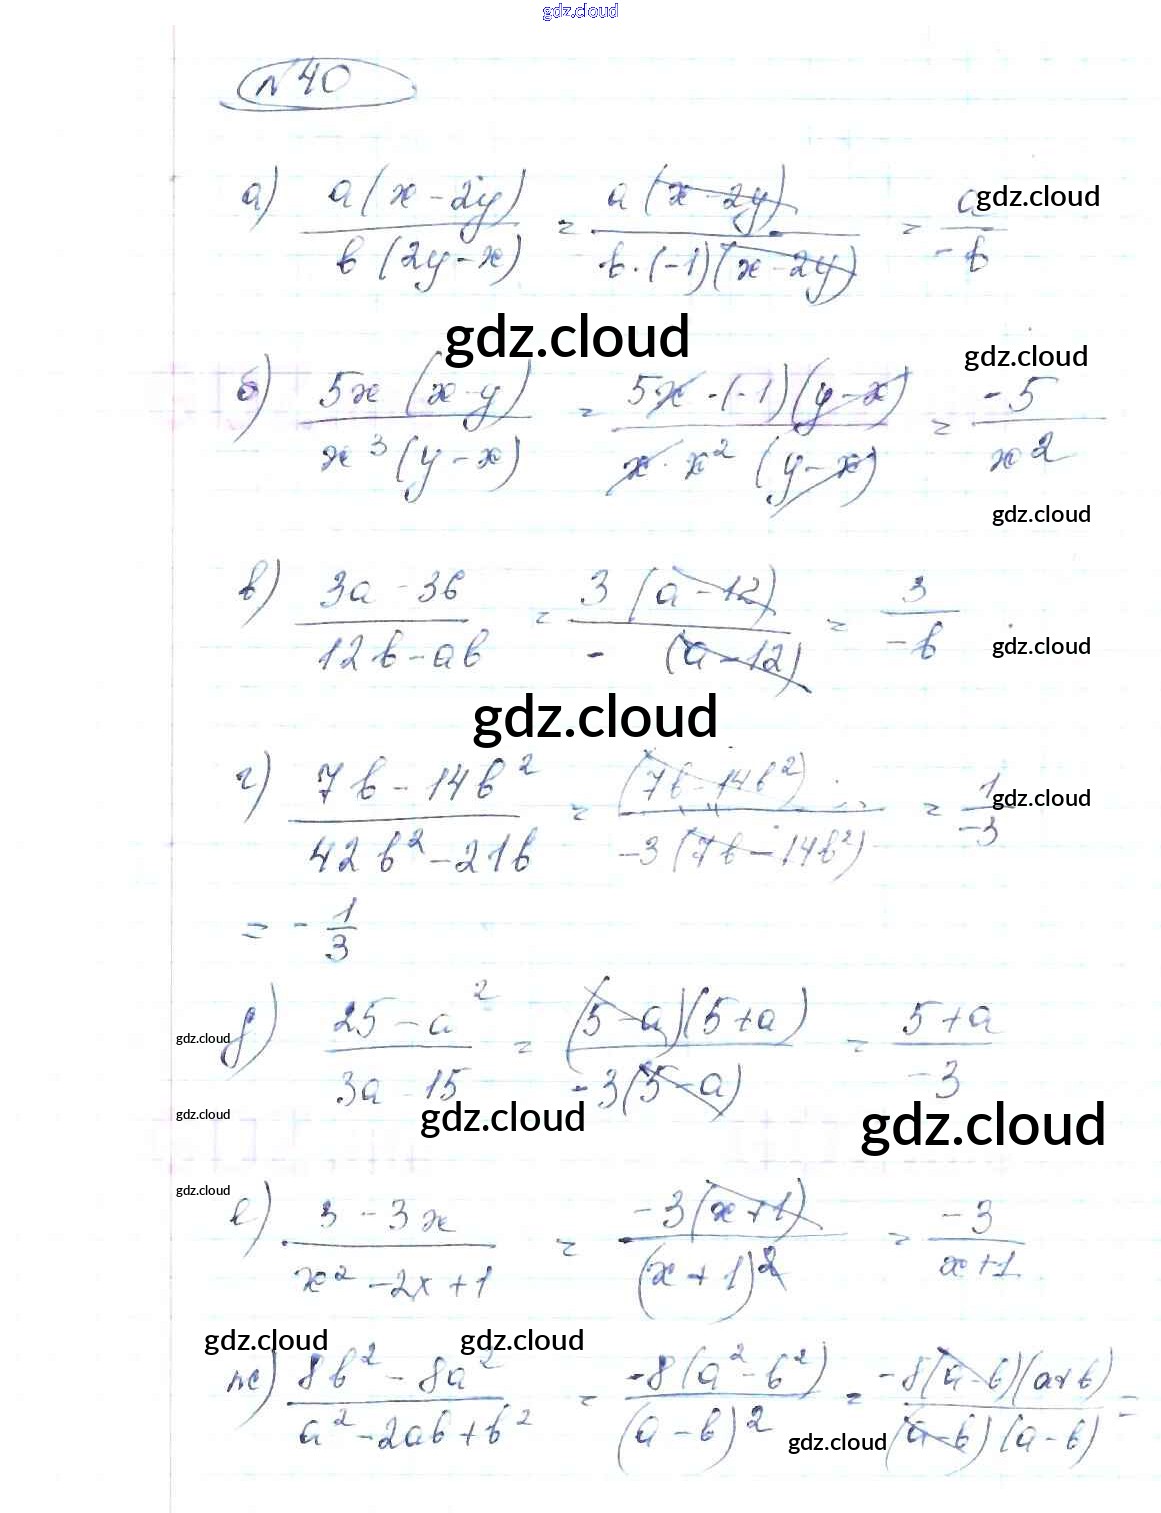 gdz.cloud
№40
а) a(x-2y)/b(2y-x) = a(x-2y)/b·(-1)(x-2y) = a/-b gdz.cloud
gdz.cloud
gdz.cloud
б) 5x(x-y)/x³(y-x) = 5x·(-1)(y-x)/x·x²(y-x) = -5/x²
gdz.cloud
в) 3a-36/12b-ab = 3(a-12)/-(a-12) = 3/-b gdz.cloud
gdz.cloud
г) 7b-14b²/42b²-21b = (7b-14b²)/-3(7b-14b²) = 1/-3 gdz.cloud
= -1/3
gdz.cloud д) 25-a²/3a-15 = (5-a)(5+a)/-3(5-a) = 5+a/-3
gdz.cloud gdz.cloud gdz.cloud
gdz.cloud
е) 3-3x/x²-2x+1 = -3(x+1)/(x+1)² = -3/x+1
gdz.cloud gdz.cloud
ж) 8b²-8a²/a²-2ab+b² = -8(a²-b²)/(a-b)² = -8(a-b)(a+b)/(a-b)(a-b) =
gdz.cloud